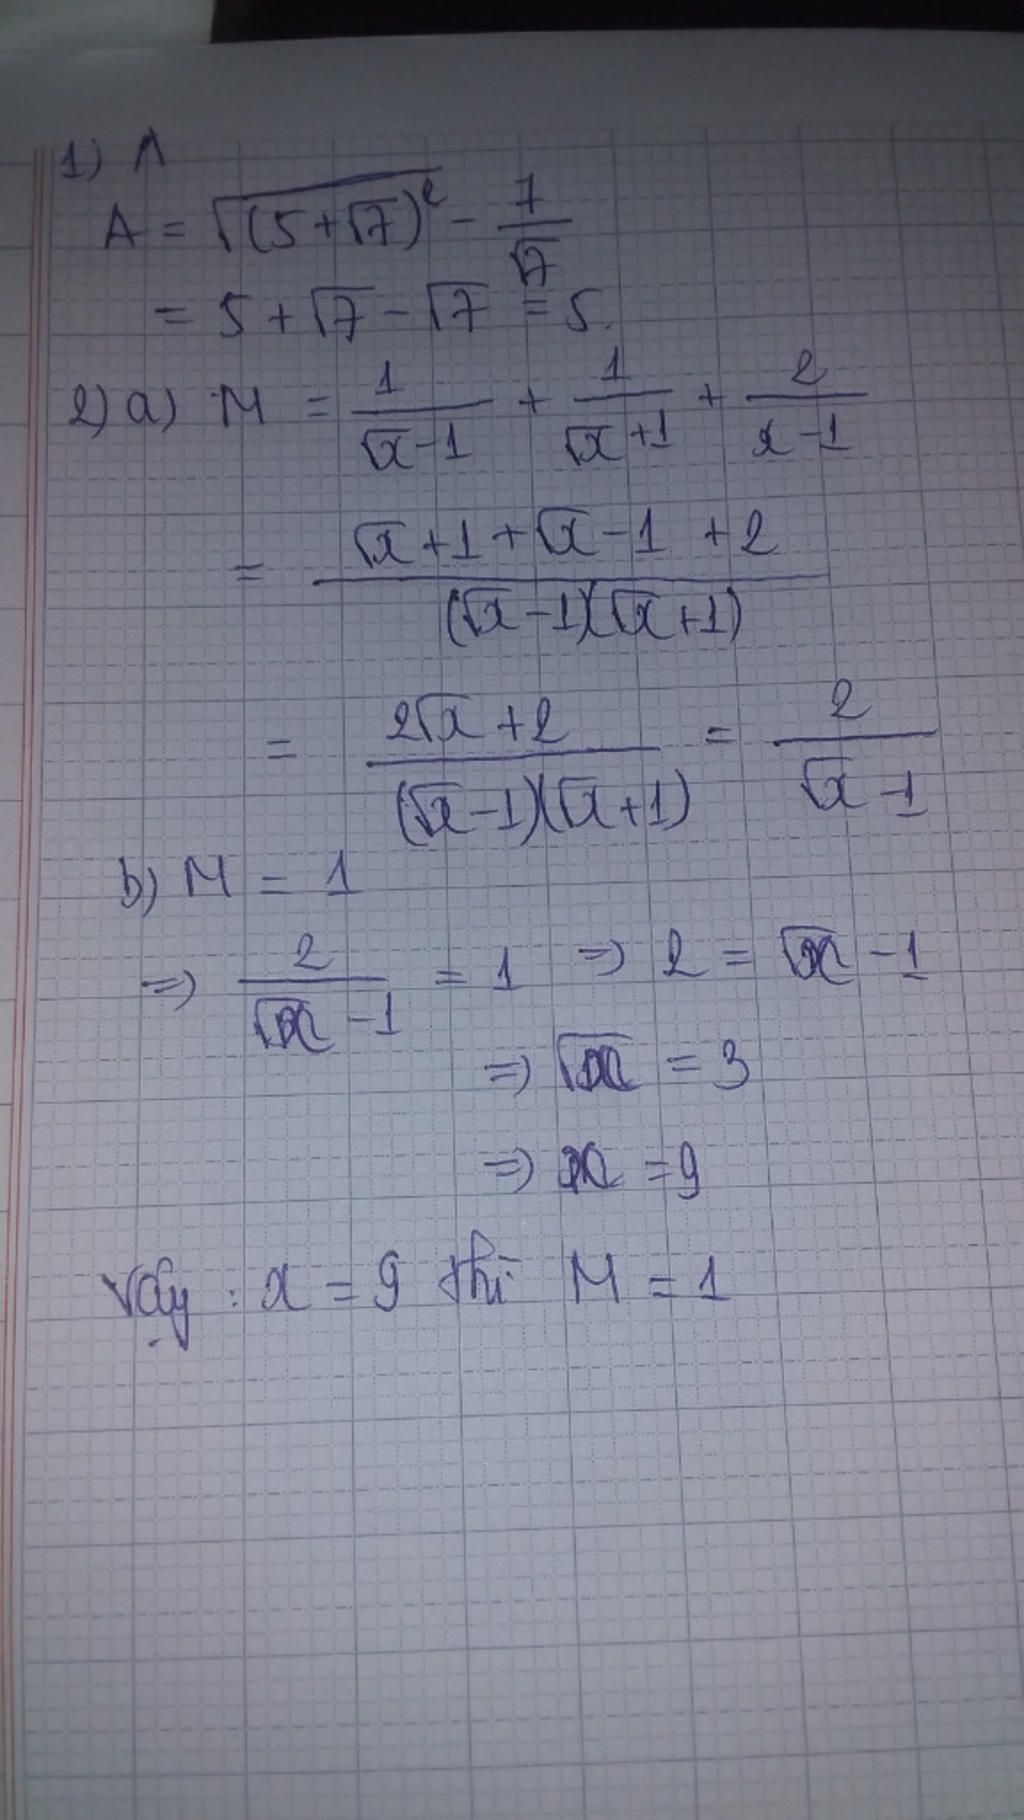 1) A
A = √(5+√7)² - 7/√7
= 5 + √7 - √7 = 5.
2) a) M = 1/(√x-1) + 1/(√x+1) + 2/(x-1)
= (√x+1+√x-1+2)/((√x-1)(√x+1))
= (2√x+2)/((√x-1)(√x+1)) = 2/(√x-1)
b) M = 1
=> 2/(√x-1) = 1 => 2 = √x - 1
=> √x = 3
=> x = 9
Vậy : x = 9 thì M = 1